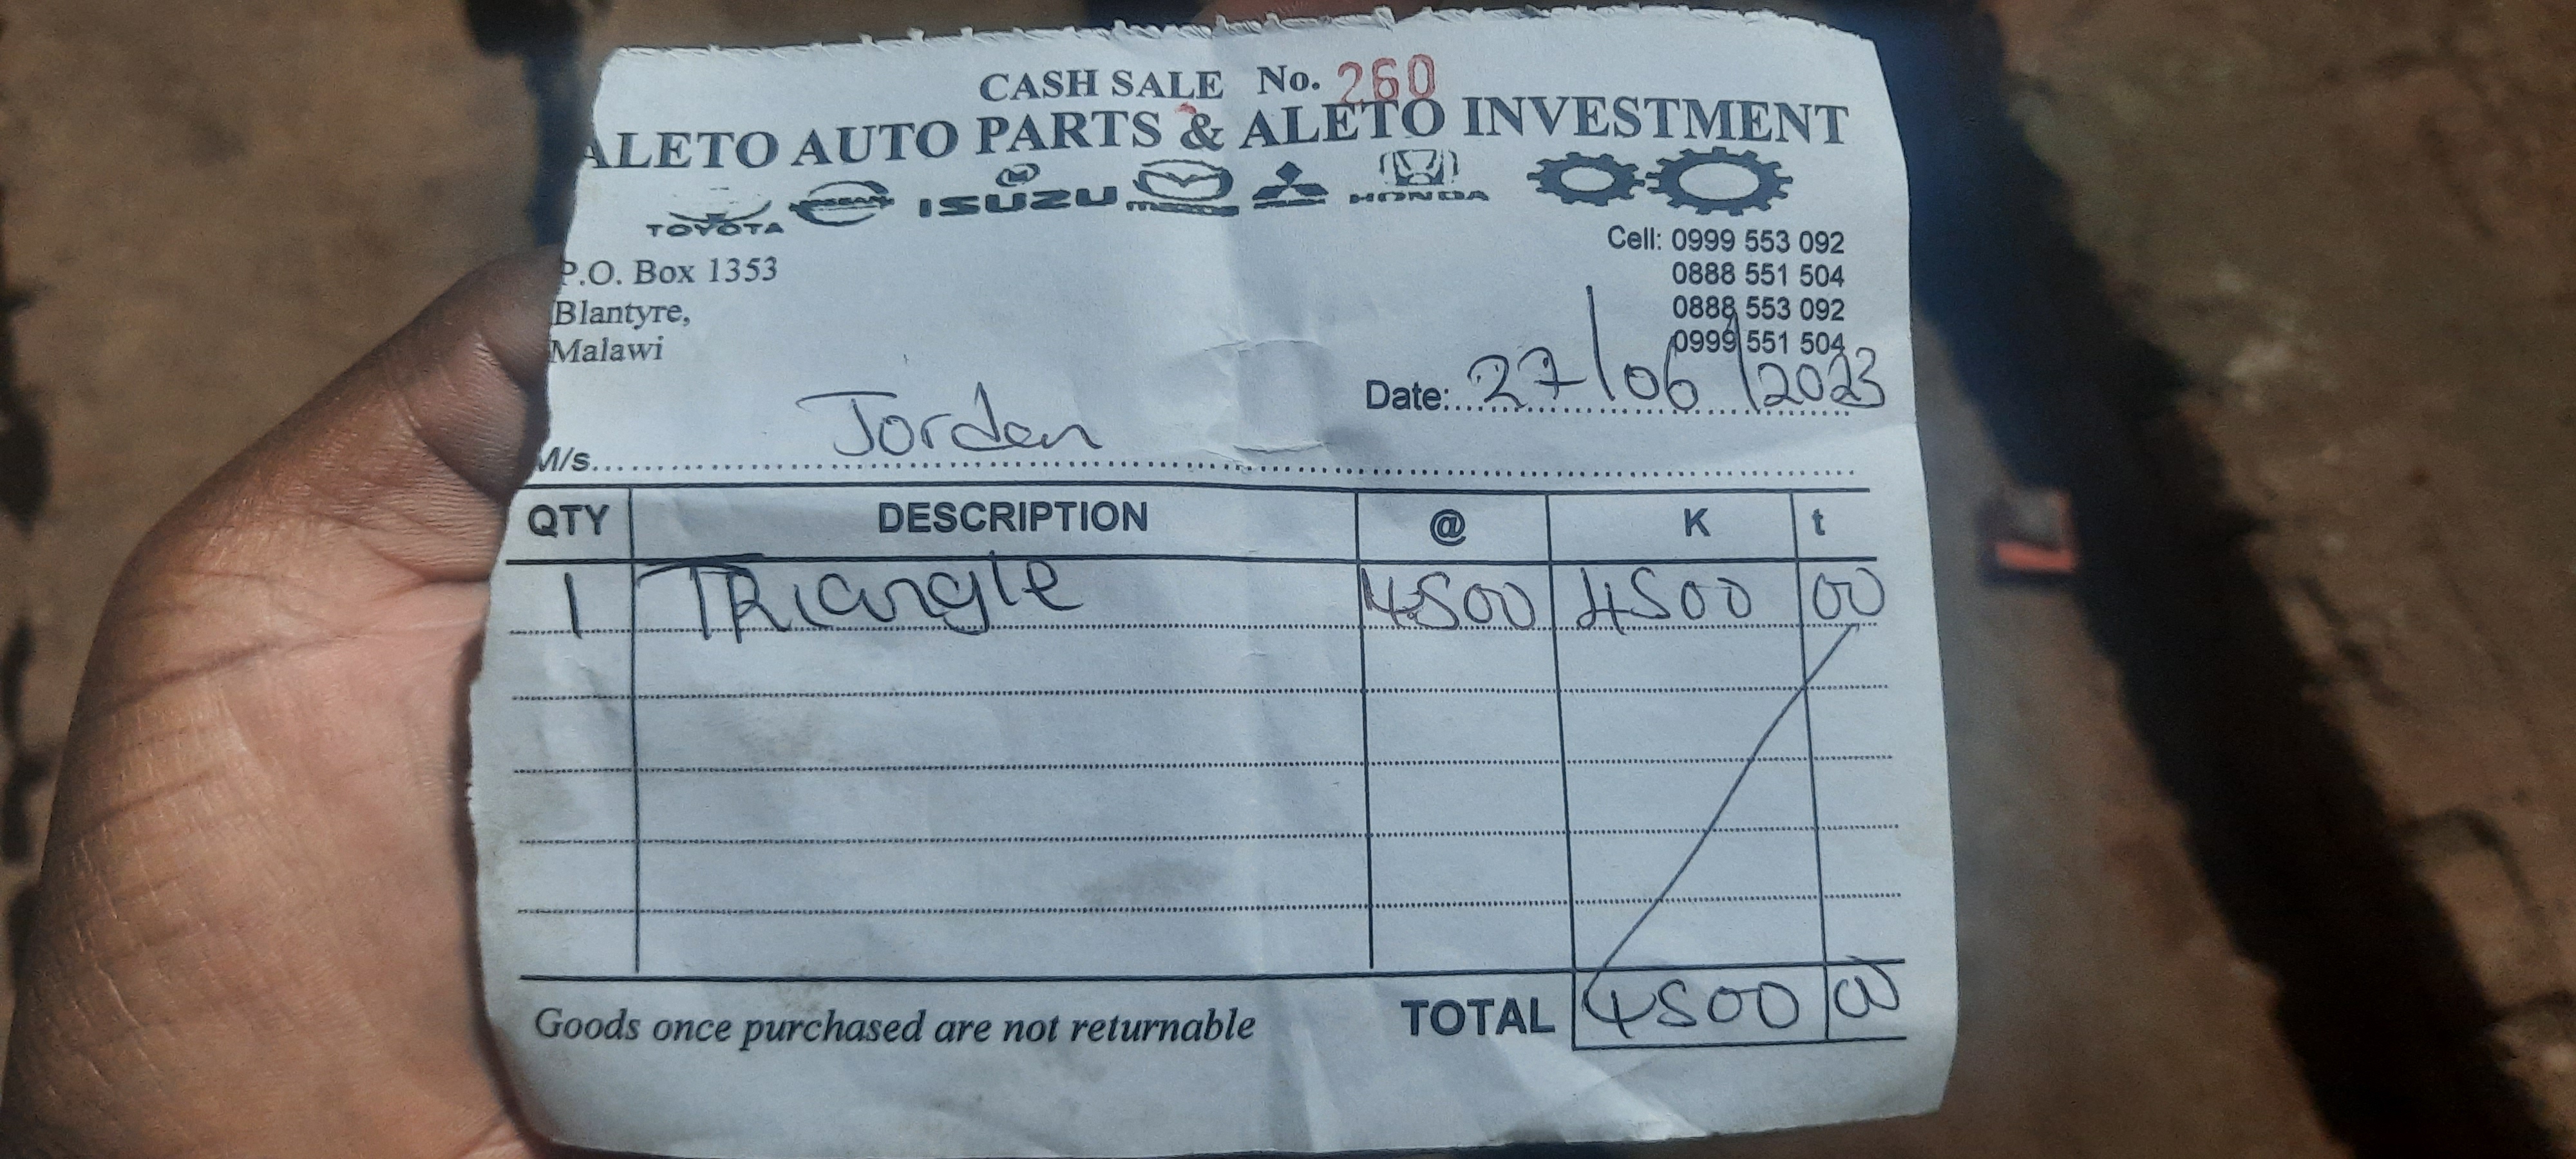 CASH SALE No. 260
ALETO AUTO PARTS & ALETO INVESTMENT
TOYOTA ISUZU HONDA
P.O. Box 1353
Blantyre,
Malawi
Cell: 0999 553 092
0888 551 504
0888 553 092
0999 551 504
Date: 27/06/2023
M/s. Jorden
QTY DESCRIPTION @ K t
1 TRiangle 4500 4500 00
TOTAL 4500 00
Goods once purchased are not returnable